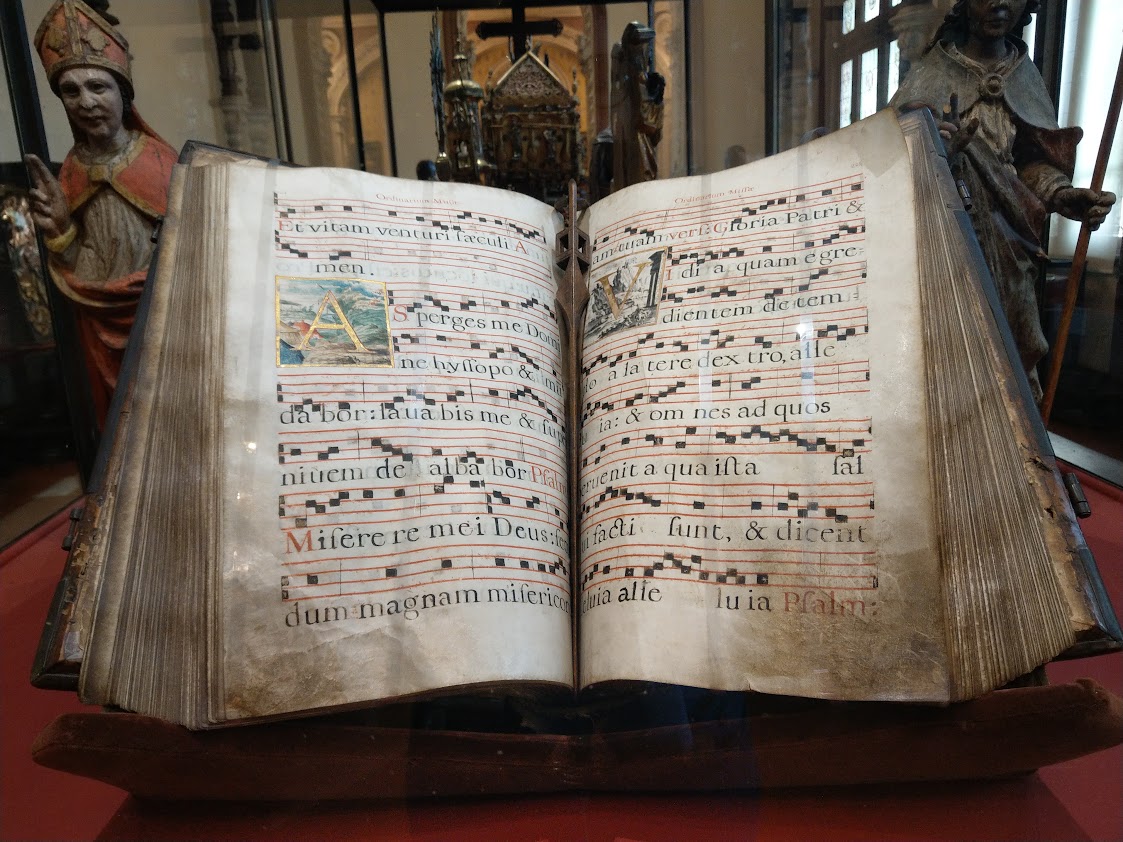 Ordinarium Missæ
Et vitam venturi sæculi A
men.
ASperges me Domi
ne hyſſopo &
da bor: laua bis me & ſu
niuem de alba bor Pſalm
Miſere re mei Deus:
dum magnam miſericor
Ordinarium Miſſæ
am tuam verſ: Gloria Patri &
VIdi a quam e gre-
dientem de tem
a la tere dex tro, alle
ia: & om nes ad quos
eruenit a qua iſta ſal
facti ſunt, & dicent
luia alle lu ia Pſalm: